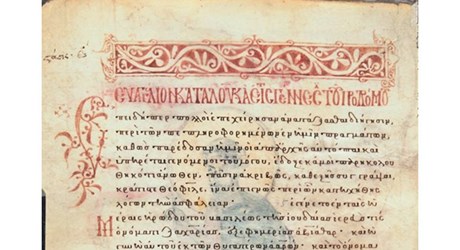 ΕΥΑΓΛΙΟΝ ΚΑΤΑ ΛΟΥΚΑ ΕΙΣ ΓΕΝΝΕΣ ΤΟΥ ΠΡΟΔΡΟΜΟ
Επειδήπερ πολλοὶ ἐπεχείρησαν ἀνατάξασθαι διήγησιν
περὶ τῶν πεπληροφορημένων ἐν ἡμῖν πραγμάτων
καθὼς παρέδοσαν ἡμῖν οἱ ἀπαρχῆς αὐτόπται καὶ
ὑπηρέται γενόμενοι τοῦ λόγου, ἔδοξε κἀμοὶ παρηκολου
θηκότι ἄνωθεν πᾶσιν ἀκριβῶς, καθεξῆς σοι γράψαι,
κράτιστε Θεόφιλε, ἵνα ἐπιγνῷς περὶ ὧν κατηχήθης
λόγων τὴν ἀσφάλειαν. Ἐγένετο ἐν ταῖς
ἡμέραις ἡρώδου τοῦ βασιλέως τῆς ἰουδαίας ἱερεύς τις
ὀνόματι ζαχαρίας, ἐξ ἐφημερίας ἀβιά καὶ
γυνὴ αὐτοῦ ἐκ τῶν θυγατέρων ἀαρών καὶ τὸ ὄνομα